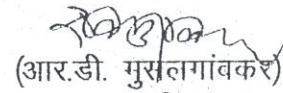 (आर.डी. गुसलगांवकर)